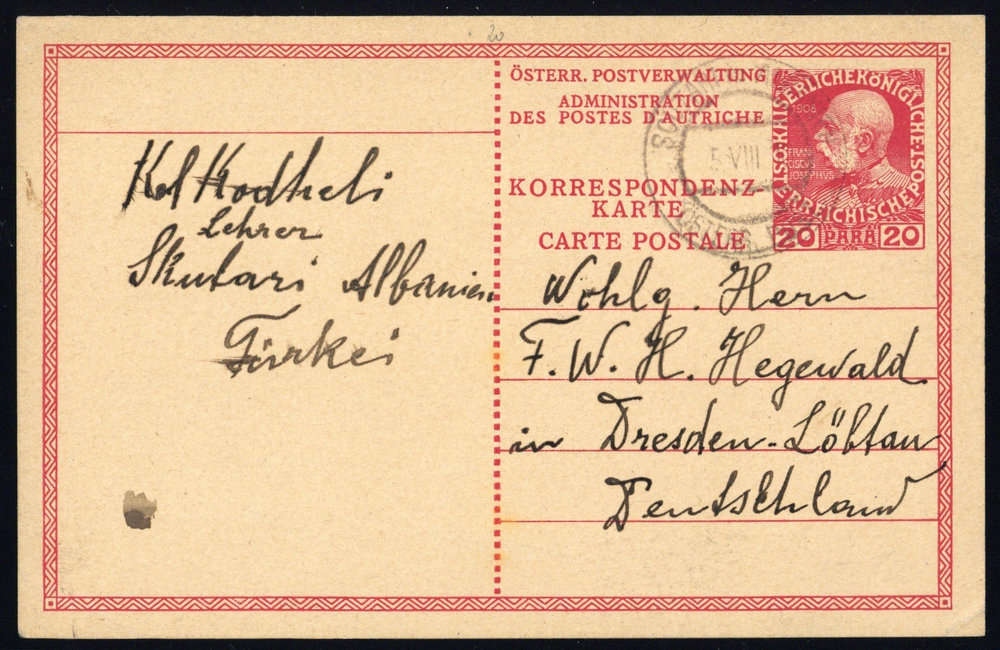 20
ÖSTERR. POSTVERWALTUNG
ADMINISTRATION
DES POSTES D'AUTRICHE
KORRESPONDENZ-
KARTE
CARTE POSTALE
KAISERLICHEKÖNIGLICHE
ÖSTERREICHISCHEPOST
1908
FRAN
CISCVS
JOSEPHVS
20 PARA 20
5 VIII
Kol Kodheli
Lehrer
Skutari Albanien
Türkei
Wohlg. Hern
F. W. H. Hegewald
in Dresden-Löbtau
Deutschland